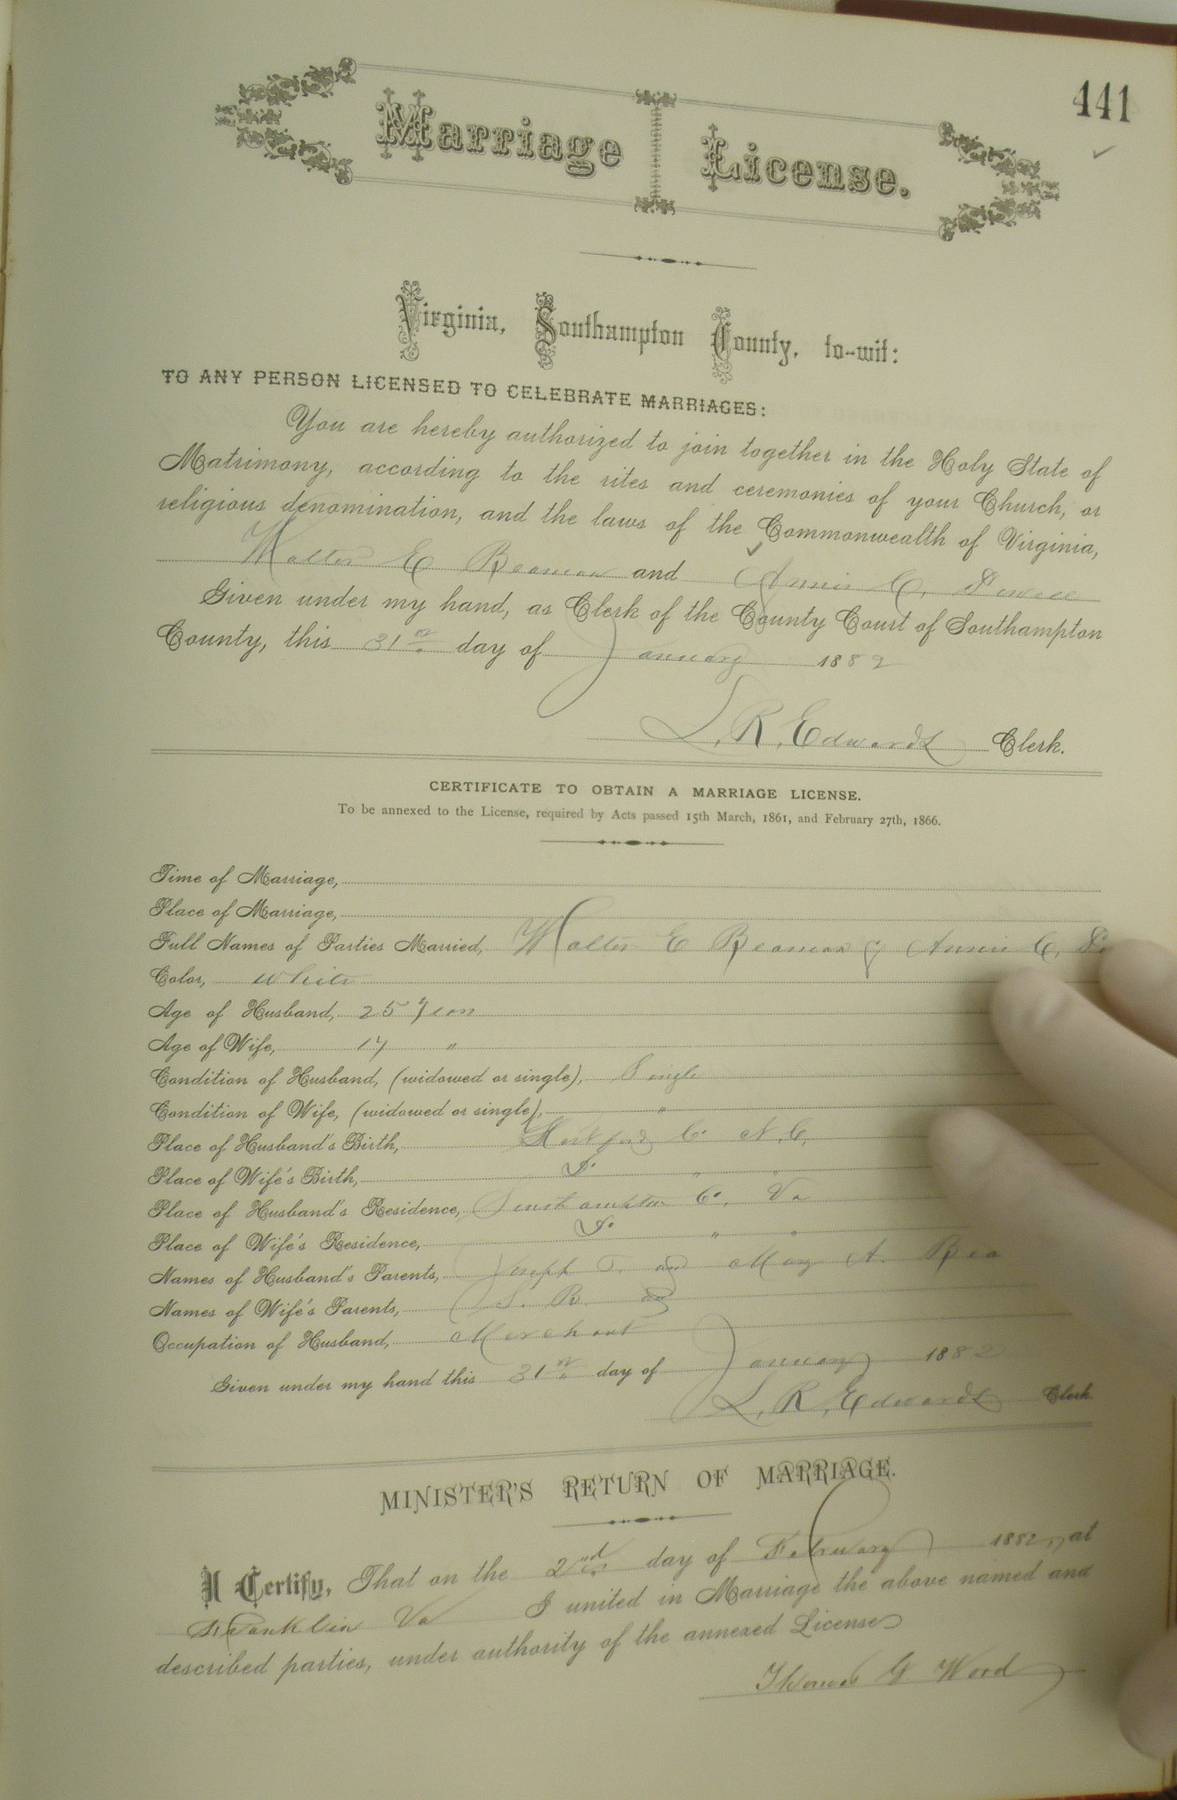 441
Marriage License.
Virginia, Southampton County, to-wit:
TO ANY PERSON LICENSED TO CELEBRATE MARRIAGES:
You are hereby authorized to join together in the Holy State of
Matrimony, according to the rites and ceremonies of your Church, or
religious denomination, and the laws of the Commonwealth of Virginia,
Walter E Beaman and Annie C.
Given under my hand, as Clerk of the County Court of Southampton
County, this 31st day of January 1882
L. R. Edwards Clerk.
CERTIFICATE TO OBTAIN A MARRIAGE LICENSE.
To be annexed to the License, required by Acts passed 15th March, 1861, and February 27th, 1866.
Time of Marriage,
Place of Marriage,
Full Names of Parties Married, Walter E Beaman & Annie C.
Color, White
Age of Husband, 25 years
Age of Wife, 17 "
Condition of Husband, (widowed or single), Single
Condition of Wife, (widowed or single), "
Place of Husband's Birth, Hertford Co N.C.
Place of Wife's Birth, Do " "
Place of Husband's Residence, Southampton Co. Va
Place of Wife's Residence, Do " "
Names of Husband's Parents, Joseph and Mary A. Bea
Names of Wife's Parents, S. B. and
Occupation of Husband, Merchant
Given under my hand this 31st day of January 1882
L. R. Edwards Clerk
MINISTER'S RETURN OF MARRIAGE.
I Certify, That on the 2nd day of February 1882, at
Franklin Va I united in Marriage the above named and
described parties, under authority of the annexed License
Thomas G Wood